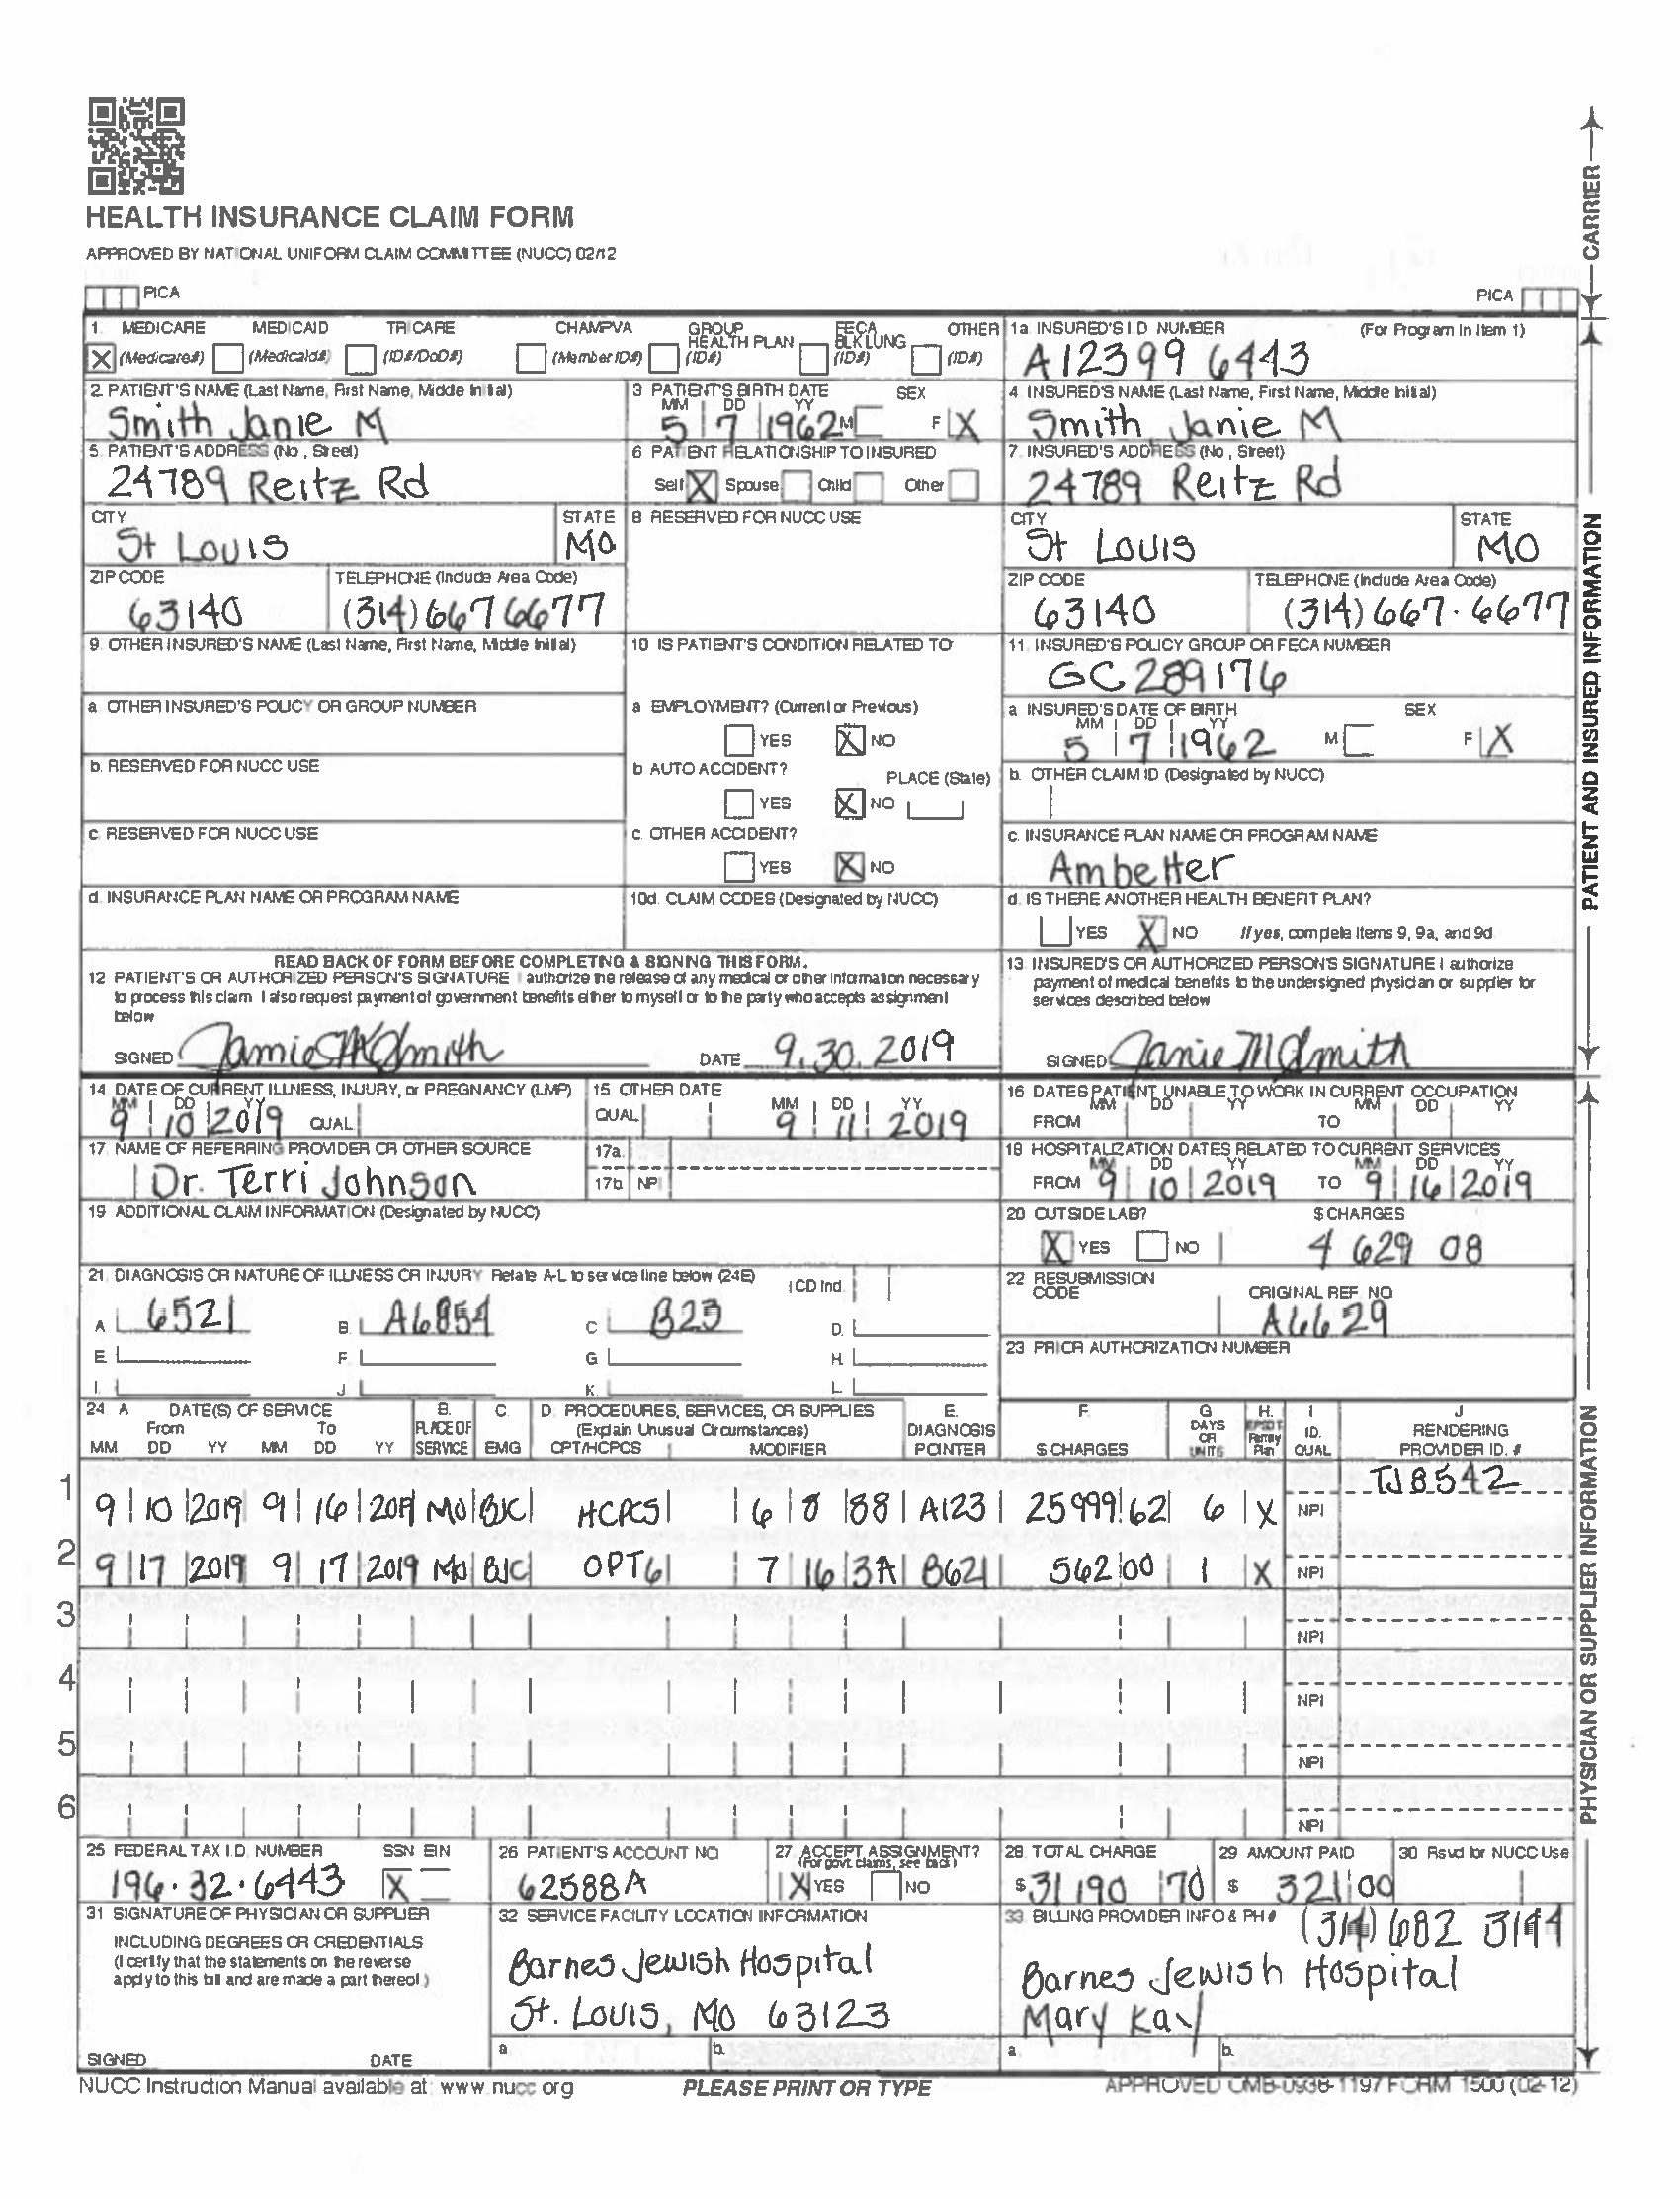 HEALTH INSURANCE CLAIM FORM
APPROVED BY NATIONAL UNIFORM CLAIM COMMITTEE (NUCC) 02/12
PICA
PICA
CARRIER
1. MEDICARE MEDICAID TRICARE CHAMPVA GROUP HEALTH PLAN FECA BLK LUNG OTHER
X (Medicare#) (Medicaid#) (ID#/DoD#) (Member ID#) (ID#) (ID#) (ID#)
1a. INSURED'S I.D. NUMBER (For Program in Item 1)
A12399 6443
2. PATIENT'S NAME (Last Name, First Name, Middle Initial)
Smith Janie M
3. PATIENT'S BIRTH DATE SEX
MM DD YY
5 7 1962 M F X
4. INSURED'S NAME (Last Name, First Name, Middle Initial)
Smith, Janie M
5. PATIENT'S ADDRESS (No., Street)
24789 Reitz Rd
6. PATIENT RELATIONSHIP TO INSURED
Self X Spouse Child Other
7. INSURED'S ADDRESS (No., Street)
24789 Reitz Rd
CITY STATE
St Louis MO
8. RESERVED FOR NUCC USE
CITY STATE
St Louis MO
ZIP CODE TELEPHONE (Include Area Code)
63140 (314) 667 6677
ZIP CODE TELEPHONE (Include Area Code)
63140 (314) 667.6677
9. OTHER INSURED'S NAME (Last Name, First Name, Middle Initial)
10. IS PATIENT'S CONDITION RELATED TO
11. INSURED'S POLICY GROUP OR FECA NUMBER
GC 289176
a. OTHER INSURED'S POLICY OR GROUP NUMBER
a. EMPLOYMENT? (Current or Previous)
YES X NO
a. INSURED'S DATE OF BIRTH SEX
MM DD YY
5 7 1962 M F X
b. RESERVED FOR NUCC USE
b. AUTO ACCIDENT? PLACE (State)
YES X NO
b. OTHER CLAIM ID (Designated by NUCC)
c. RESERVED FOR NUCC USE
c. OTHER ACCIDENT?
YES X NO
c. INSURANCE PLAN NAME OR PROGRAM NAME
Ambetter
d. INSURANCE PLAN NAME OR PROGRAM NAME
10d. CLAIM CODES (Designated by NUCC)
d. IS THERE ANOTHER HEALTH BENEFIT PLAN?
YES X NO If yes, complete items 9, 9a, and 9d
PATIENT AND INSURED INFORMATION
READ BACK OF FORM BEFORE COMPLETING & SIGNING THIS FORM.
12. PATIENT'S OR AUTHORIZED PERSON'S SIGNATURE I authorize the release of any medical or other information necessary
to process this claim. I also request payment of government benefits either to myself or to the party who accepts assignment
below
SIGNED Jamie M Smith DATE 9.30.2019
13. INSURED'S OR AUTHORIZED PERSON'S SIGNATURE I authorize
payment of medical benefits to the undersigned physician or supplier for
services described below
SIGNED Janie M Smith
14. DATE OF CURRENT ILLNESS, INJURY, or PREGNANCY (LMP)
MM DD YY
9 10 2019 QUAL
15. OTHER DATE
QUAL MM DD YY
9 11 2019
16. DATES PATIENT UNABLE TO WORK IN CURRENT OCCUPATION
MM DD YY MM DD YY
FROM TO
17. NAME OF REFERRING PROVIDER OR OTHER SOURCE
Dr. Terri Johnson
17a.
17b. NPI
18. HOSPITALIZATION DATES RELATED TO CURRENT SERVICES
MM DD YY MM DD YY
FROM 9 10 2019 TO 9 16 2019
19. ADDITIONAL CLAIM INFORMATION (Designated by NUCC)
20. OUTSIDE LAB? $ CHARGES
X YES NO 4 629 08
21. DIAGNOSIS OR NATURE OF ILLNESS OR INJURY Relate A-L to service line below (24E) ICD Ind.
A. 6521 B. A6854 C. B23 D.
E. F. G. H.
I. J. K. L.
22. RESUBMISSION CODE ORIGINAL REF. NO.
A6629
23. PRIOR AUTHORIZATION NUMBER
24. A. DATE(S) OF SERVICE B. C. D. PROCEDURES, SERVICES, OR SUPPLIES E. F. G. H. I. J.
From To PLACE OF (Explain Unusual Circumstances) DIAGNOSIS DAYS OR EPSDT Family ID. RENDERING
MM DD YY MM DD YY SERVICE EMG CPT/HCPCS MODIFIER POINTER $ CHARGES UNITS Plan QUAL. PROVIDER ID. #
TJ8542
1 9 10 2019 9 16 2019 MO BJC HCPCS 6 8 88 A123 25999 62 6 X NPI
2 9 17 2019 9 17 2019 MO BJC OPT6 7 16 3A B621 562 00 1 X NPI
3 NPI
4 NPI
5 NPI
6 NPI
25. FEDERAL TAX I.D. NUMBER SSN EIN
196.32.6443 X
26. PATIENT'S ACCOUNT NO
62588A
27. ACCEPT ASSIGNMENT?
(For govt. claims, see back)
X YES NO
28. TOTAL CHARGE
$ 31190 70
29. AMOUNT PAID
$ 321 00
30. Rsvd for NUCC Use
31. SIGNATURE OF PHYSICIAN OR SUPPLIER
INCLUDING DEGREES OR CREDENTIALS
(I certify that the statements on the reverse
apply to this bill and are made a part thereof.)
SIGNED DATE
32. SERVICE FACILITY LOCATION INFORMATION
Barnes Jewish Hospital
St. Louis, MO 63123
a. b.
33. BILLING PROVIDER INFO & PH # (314) 682 3144
Barnes Jewish Hospital
Mary Kay
a. b.
PHYSICIAN OR SUPPLIER INFORMATION
NUCC Instruction Manual available at: www.nucc.org PLEASE PRINT OR TYPE APPROVED OMB-0938-1197 FORM 1500 (02-12)